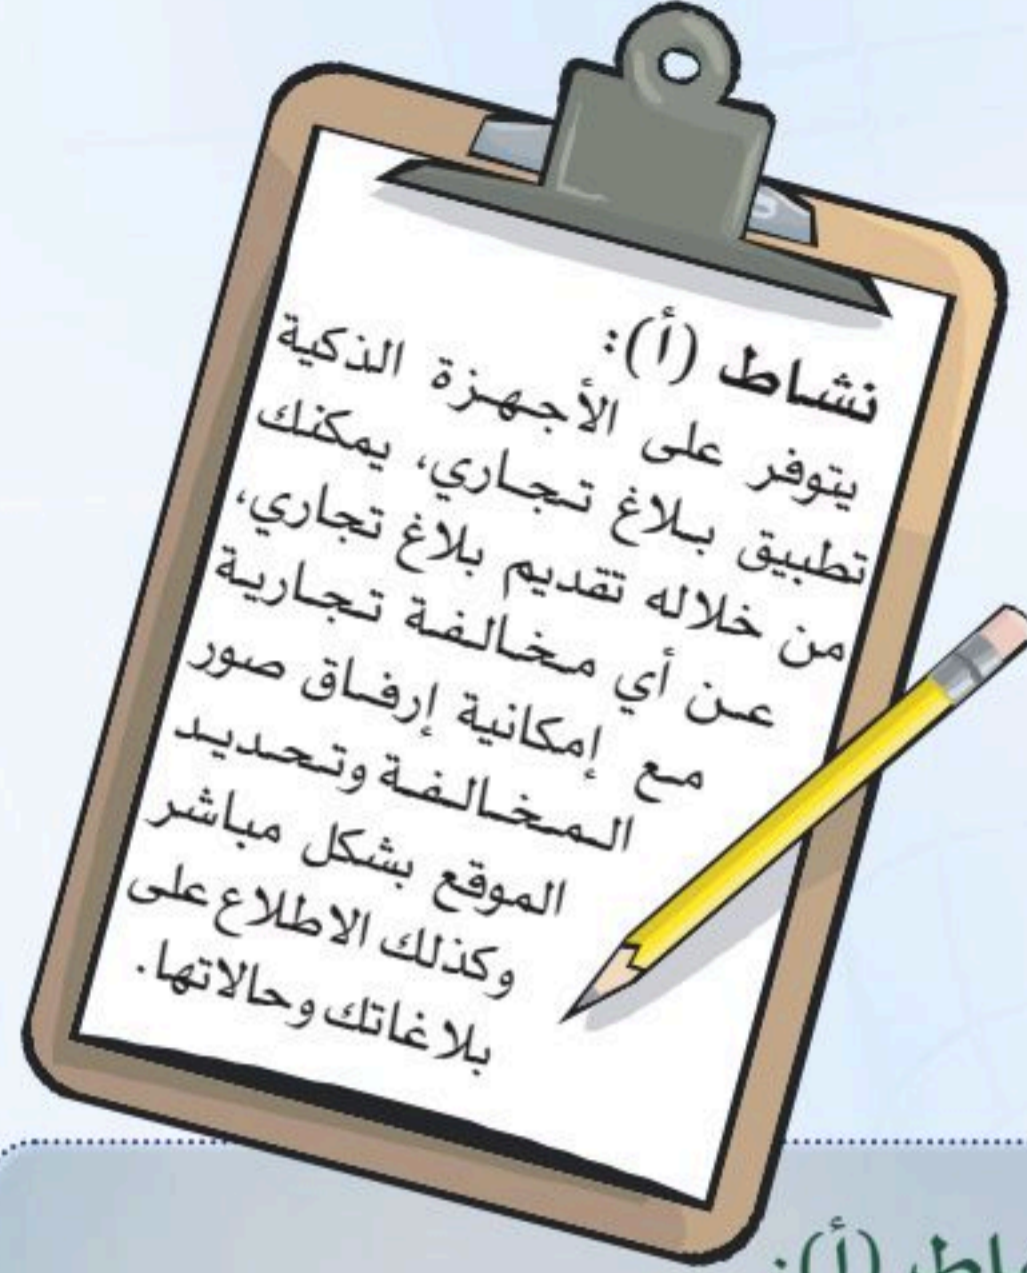 نشاط (أ):
يتوفر على الأجهزة الذكية
تطبيق بلاغ تجاري، يمكنك
من خلاله تقديم بلاغ تجاري،
عن أي مخالفة تجارية
مع إمكانية إرفاق صور
المخالفة وتحديد
الموقع بشكل مباشر
وكذلك الاطلاع على
بلاغاتك وحالاتها.
(أ):